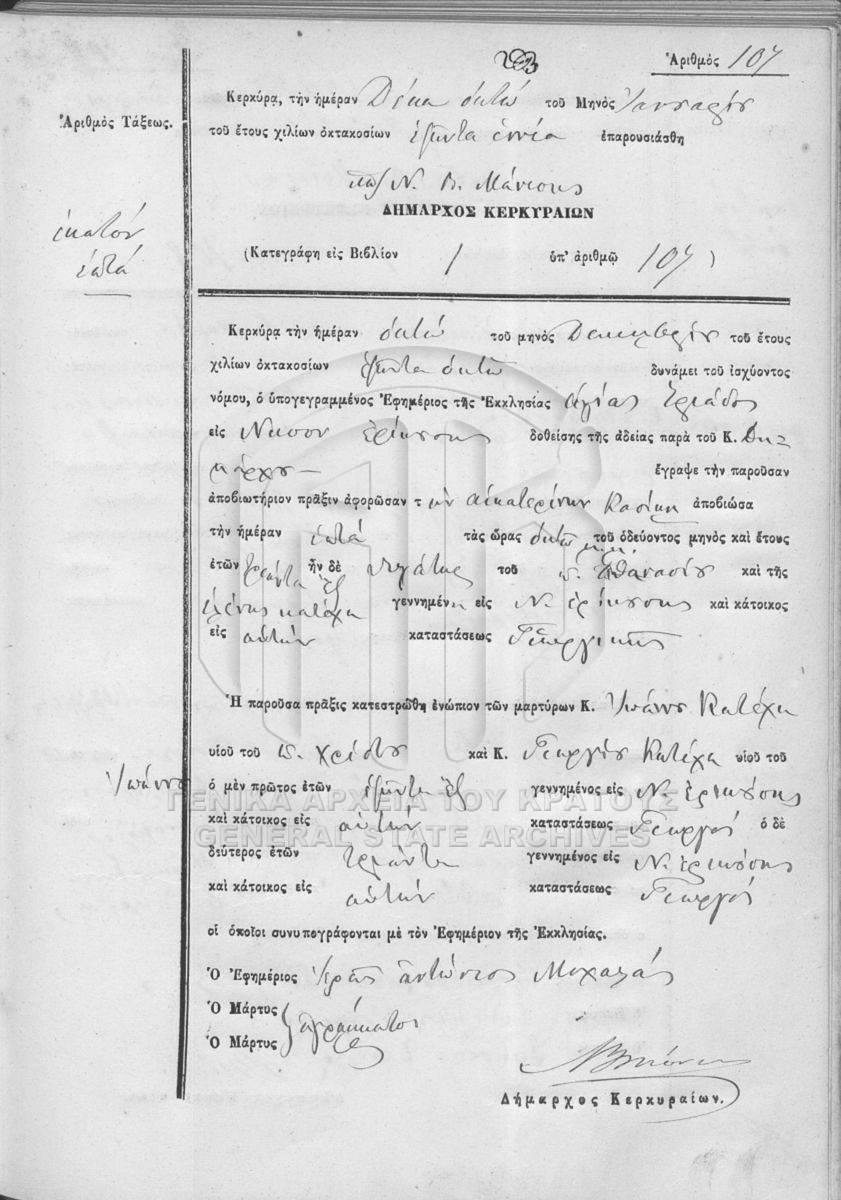 Ἀριθμὸς 107
Κερκύρᾳ, τὴν ἡμέραν Δέκα ὀκτώ τοῦ Μηνὸς Ἰανουαρίου
Ἀριθμὸς Τάξεως.
τοῦ ἔτους χιλίων ὀκτακοσίων ἑξῆντα ἐννέα ἐπαρουσιάσθη
Ν. Β. Μάνεσης
ΔΗΜΑΡΧΟΣ ΚΕΡΚΥΡΑΙΩΝ
ἑκατὸν
ἑπτά
(Κατεγράφη εἰς Βιβλίον 1 ὑπ' ἀριθμῷ 107)
Κερκύρᾳ τὴν ἡμέραν ὀκτώ τοῦ μηνὸς Δεκεμβρίου τοῦ ἔτους
χιλίων ὀκτακοσίων ἑξῆντα ὀκτὼ δυνάμει τοῦ ἰσχύοντος
νόμου, ὁ ὑπογεγραμμένος Ἐφημέριος τῆς Ἐκκλησίας Ἁγίας Τριάδος
εἰς Νῆσον Ἐρίκουσης δοθείσης τῆς ἀδείας παρὰ τοῦ Κ. Δη-
μάρχου ἔγραψε τὴν παροῦσαν
ἀποβιωτήριον πρᾶξιν ἀφορῶσαν τὴν Αἰκατερίνην Κασίμη ἀποβιώσα
τὴν ἡμέραν ἑπτά τὰς ὥρας ὀκτὼ π.μ. τοῦ ὁδεύοντος μηνὸς καὶ ἔτους
ἐτῶν τριάντα ἓξ ἦν δὲ θυγάτης τοῦ π. Ἀθανασίου καὶ τῆς
Ἑλένης Κατέχα γεννημένη εἰς Ν. Ἐρίκουσης καὶ κάτοικος
εἰς αὐτήν καταστάσεως Γεωργικῆς
Ἡ παροῦσα πρᾶξις κατεστρώθη ἐνώπιον τῶν μαρτύρων Κ. Ἰωάννου Κατέχα
υἱοῦ τοῦ π. Χρίστου καὶ Κ. Γεωργίου Κατέχα υἱοῦ τοῦ
Ἰωάννου ὁ μὲν πρῶτος ἐτῶν ἑξῆντα ἓξ γεννημένος εἰς Ν. Ἐρικούσης
καὶ κάτοικος εἰς αὐτήν καταστάσεως Γεωργός ὁ δὲ
δεύτερος ἐτῶν τριάντα γεννημένος εἰς Ν. Ἐρικούσης
καὶ κάτοικος εἰς αὐτήν καταστάσεως Γεωργός
οἱ ὁποῖοι συνυπογράφονται μὲ τὸν Ἐφημέριον τῆς Ἐκκλησίας.
Ὁ Ἐφημέριος Ἱερεὺς Ἀντώνιος Μιχαλᾶς
Ὁ Μάρτυς
ἀγράμματοι
Ὁ Μάρτυς
Δήμαρχος Κερκυραίων.
ΓΕΝΙΚΑ ΑΡΧΕΙΑ ΤΟΥ ΚΡΑΤΟΥΣ
GENERAL STATE ARCHIVES